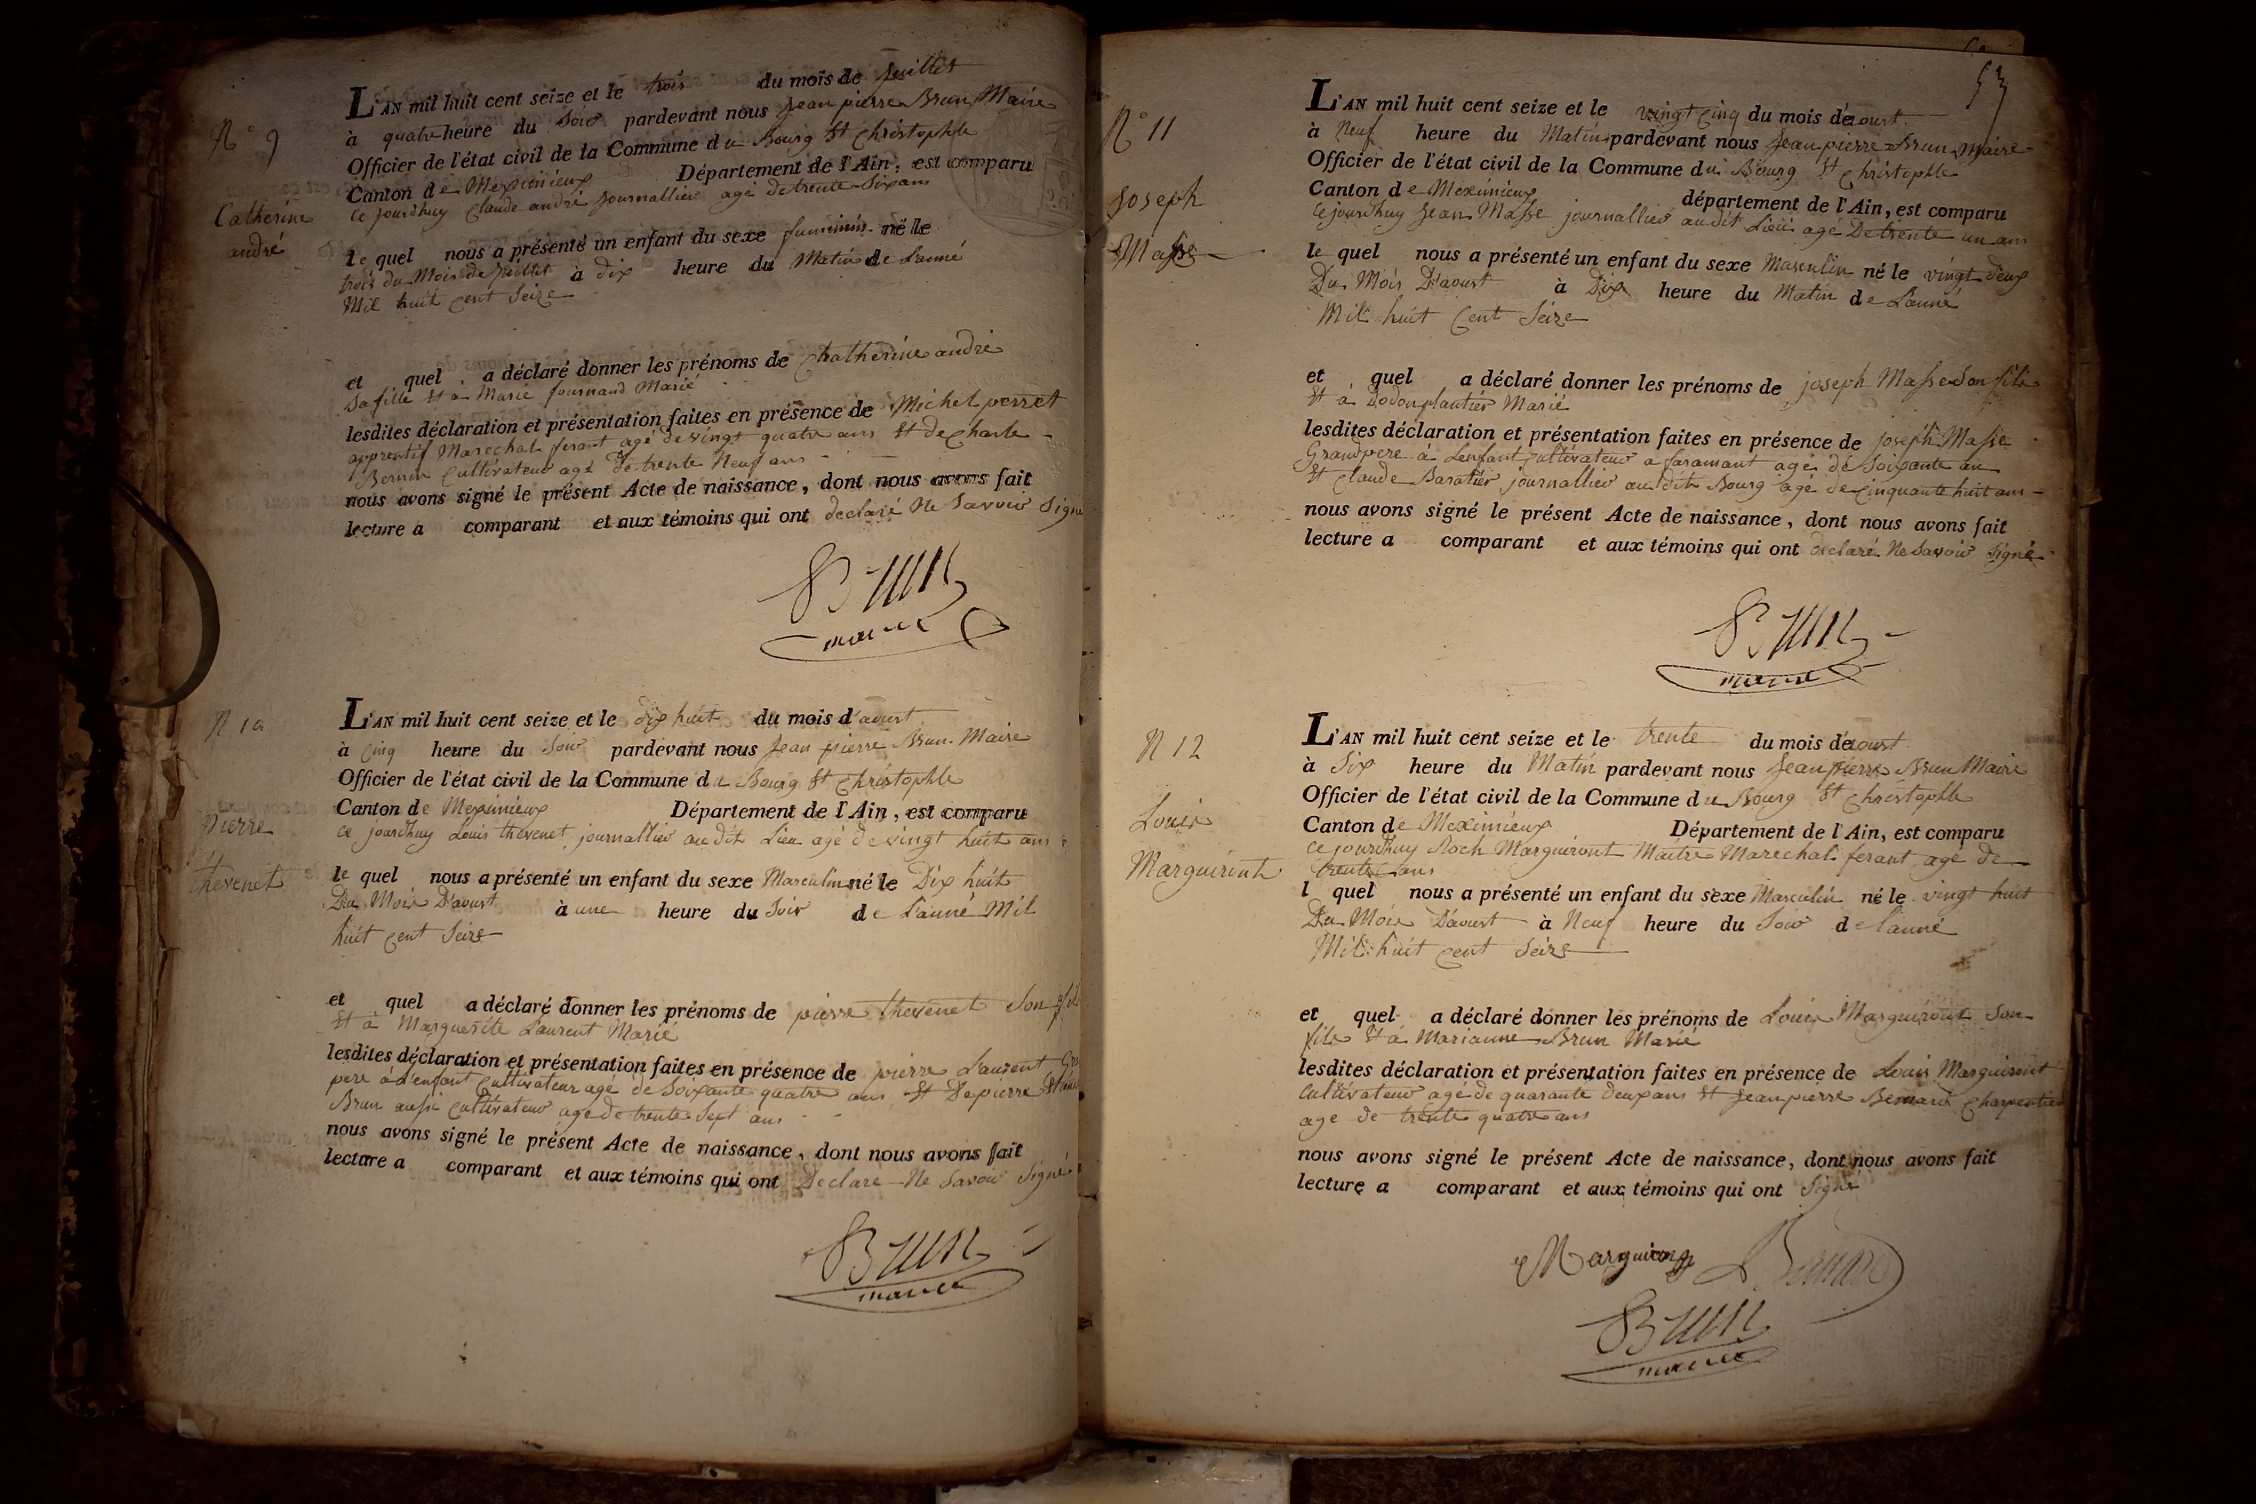 N° 9
Catherine
andré
L'AN mil huit cent seize et le trois du mois de Juillet
à quatre heure du Soir pardevant nous Jean pierre Brun Maire
Officier de l'état civil de la Commune du Bourg St Christophle
Canton de Meximieux Département de l'Ain, est comparu
ce jourdhuy Claude andré Journallier agé de trente Six ans
le quel nous a présenté un enfant du sexe né le
trois du Mois de Juillet à dix heure du Matin de L'anné
Mil huit cent Seize
et quel a déclaré donner les prénoms de Chatherine andré
Sa fille Et à Marie fournand Marié
lesdites déclaration et présentation faites en présence de Michel perret
apprentif Marechal ferant agé de vingt quatre ans Et de Charle
Bernin Cultivateur agé de trente Neuf ans
nous avons signé le présent Acte de naissance, dont nous avons fait
lecture a comparant et aux témoins qui ont declaré Ne Savoir Signé
Brun
maire
N 10
Pierre
thevenet
L'AN mil huit cent seize et le dix huit du mois d'aoust
à Cinq heure du Soir pardevant nous Jean pierre Brun Maire
Officier de l'état civil de la Commune du Bourg St Christophle
Canton de Meximieux Département de l'Ain, est comparu
ce jourdhuy Louis thevenet journallier audit Lieu agé de vingt huit ans
le quel nous a présenté un enfant du sexe Masculin né le Dix huit
Du Mois D'aoust à une heure du Soir de L'anné Mil
huit Cent Seize
et quel a déclaré donner les prénoms de pierre thevenet Son fils
Et à Marguerite Laurent Marié
lesdites déclaration et présentation faites en présence de pierre Laurent
pere à L'enfant Cultivateur agé de Soixante quatre ans Et De pierre
Brun aussi Cultivateur agé de trente Sept ans
nous avons signé le présent Acte de naissance, dont nous avons fait
lecture a comparant et aux témoins qui ont Declaré Ne Savoir Signé
Brun
maire
53
N° 11
Joseph
Masse
L'AN mil huit cent seize et le vingt Cinq du mois d'aoust
à Neuf heure du Matin pardevant nous Jean pierre Brun Maire
Officier de l'état civil de la Commune du Bourg St Christophle
Canton de Meximieux département de l'Ain, est comparu
ce jourdhuy Jean Masse journallier audit Lieu agé De trente un ans
le quel nous a présenté un enfant du sexe Masculin né le vingt deux
Du Mois D'aoust à Dix heure du Matin de L'anné
Mil huit Cent Seize
et quel a déclaré donner les prénoms de joseph Masse Son fils
Et à Dodon plantier Marié
lesdites déclaration et présentation faites en présence de joseph Masse
Grandpere à L'enfant Cultivateur a faramant agé de Soixante an
Et Claude Baratier journallier au dit Bourg agé de Cinquante huit ans
nous avons signé le présent Acte de naissance, dont nous avons fait
lecture a comparant et aux témoins qui ont declaré Ne Savoir Signé
Brun
maire
N 12
Louis
Marguiront
L'AN mil huit cent seize et le trente du mois d'aoust
à Six heure du Matin pardevant nous Jean pierre Brun Maire
Officier de l'état civil de la Commune du Bourg St Christophle
Canton de Meximieux Département de l'Ain, est comparu
ce jourdhuy Roch Marguiront Maitre Marechal ferant agé de
trente ans
l quel nous a présenté un enfant du sexe Masculin né le vingt huit
Du Mois D'aoust à Neuf heure du Soir de l'anné
Mil huit Cent Seize
et quel a déclaré donner les prénoms de Louis Marguiront Son
fils Et à Marianne Brun Marié
lesdites déclaration et présentation faites en présence de Louis Marguiront
Cultivateur agé de quarante deux ans Et Jean pierre Bernard Charpentier
age de trente quatre ans
nous avons signé le présent Acte de naissance, dont nous avons fait
lecture a comparant et aux témoins qui ont Signé
Bernard
Brun
maire